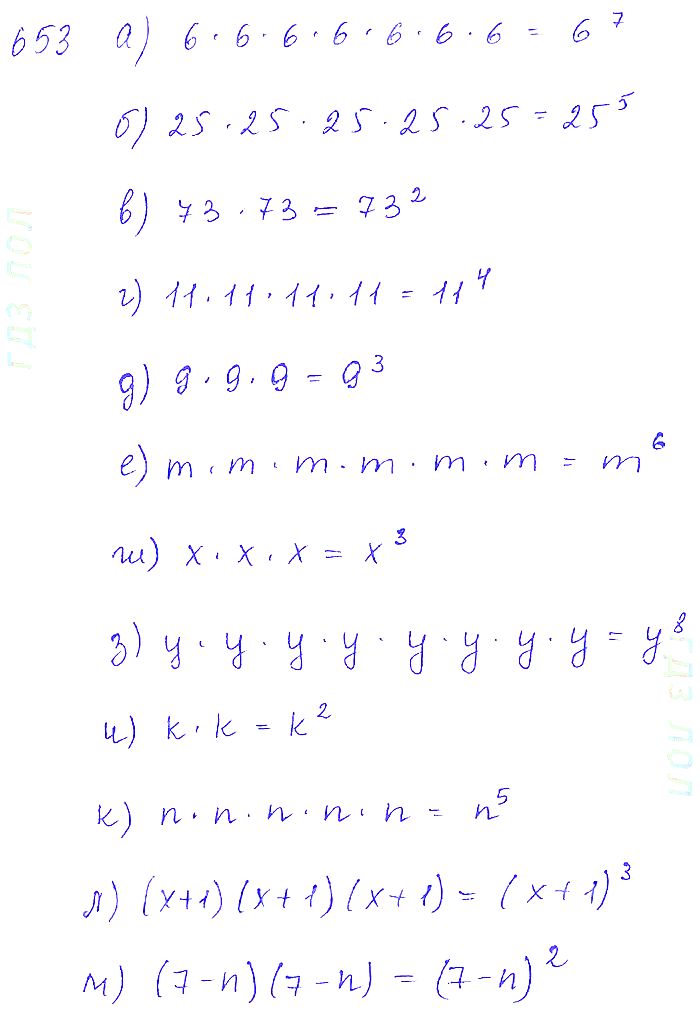 653 а) 6 · 6 · 6 · 6 · 6 · 6 · 6 = 6⁷
б) 25 · 25 · 25 · 25 · 25 = 25⁵
в) 73 · 73 = 73²
г) 11 · 11 · 11 · 11 = 11⁴
д) 9 · 9 · 9 = 9³
е) m · m · m · m · m · m = m⁶
ж) x · x · x = x³
з) y · y · y · y · y · y · y · y = y⁸
и) k · k = k²
к) n · n · n · n · n = n⁵
л) (x+1) (x+1) (x+1) = (x+1)³
м) (7-n) (7-n) = (7-n)²
гдз лол
гдз лол